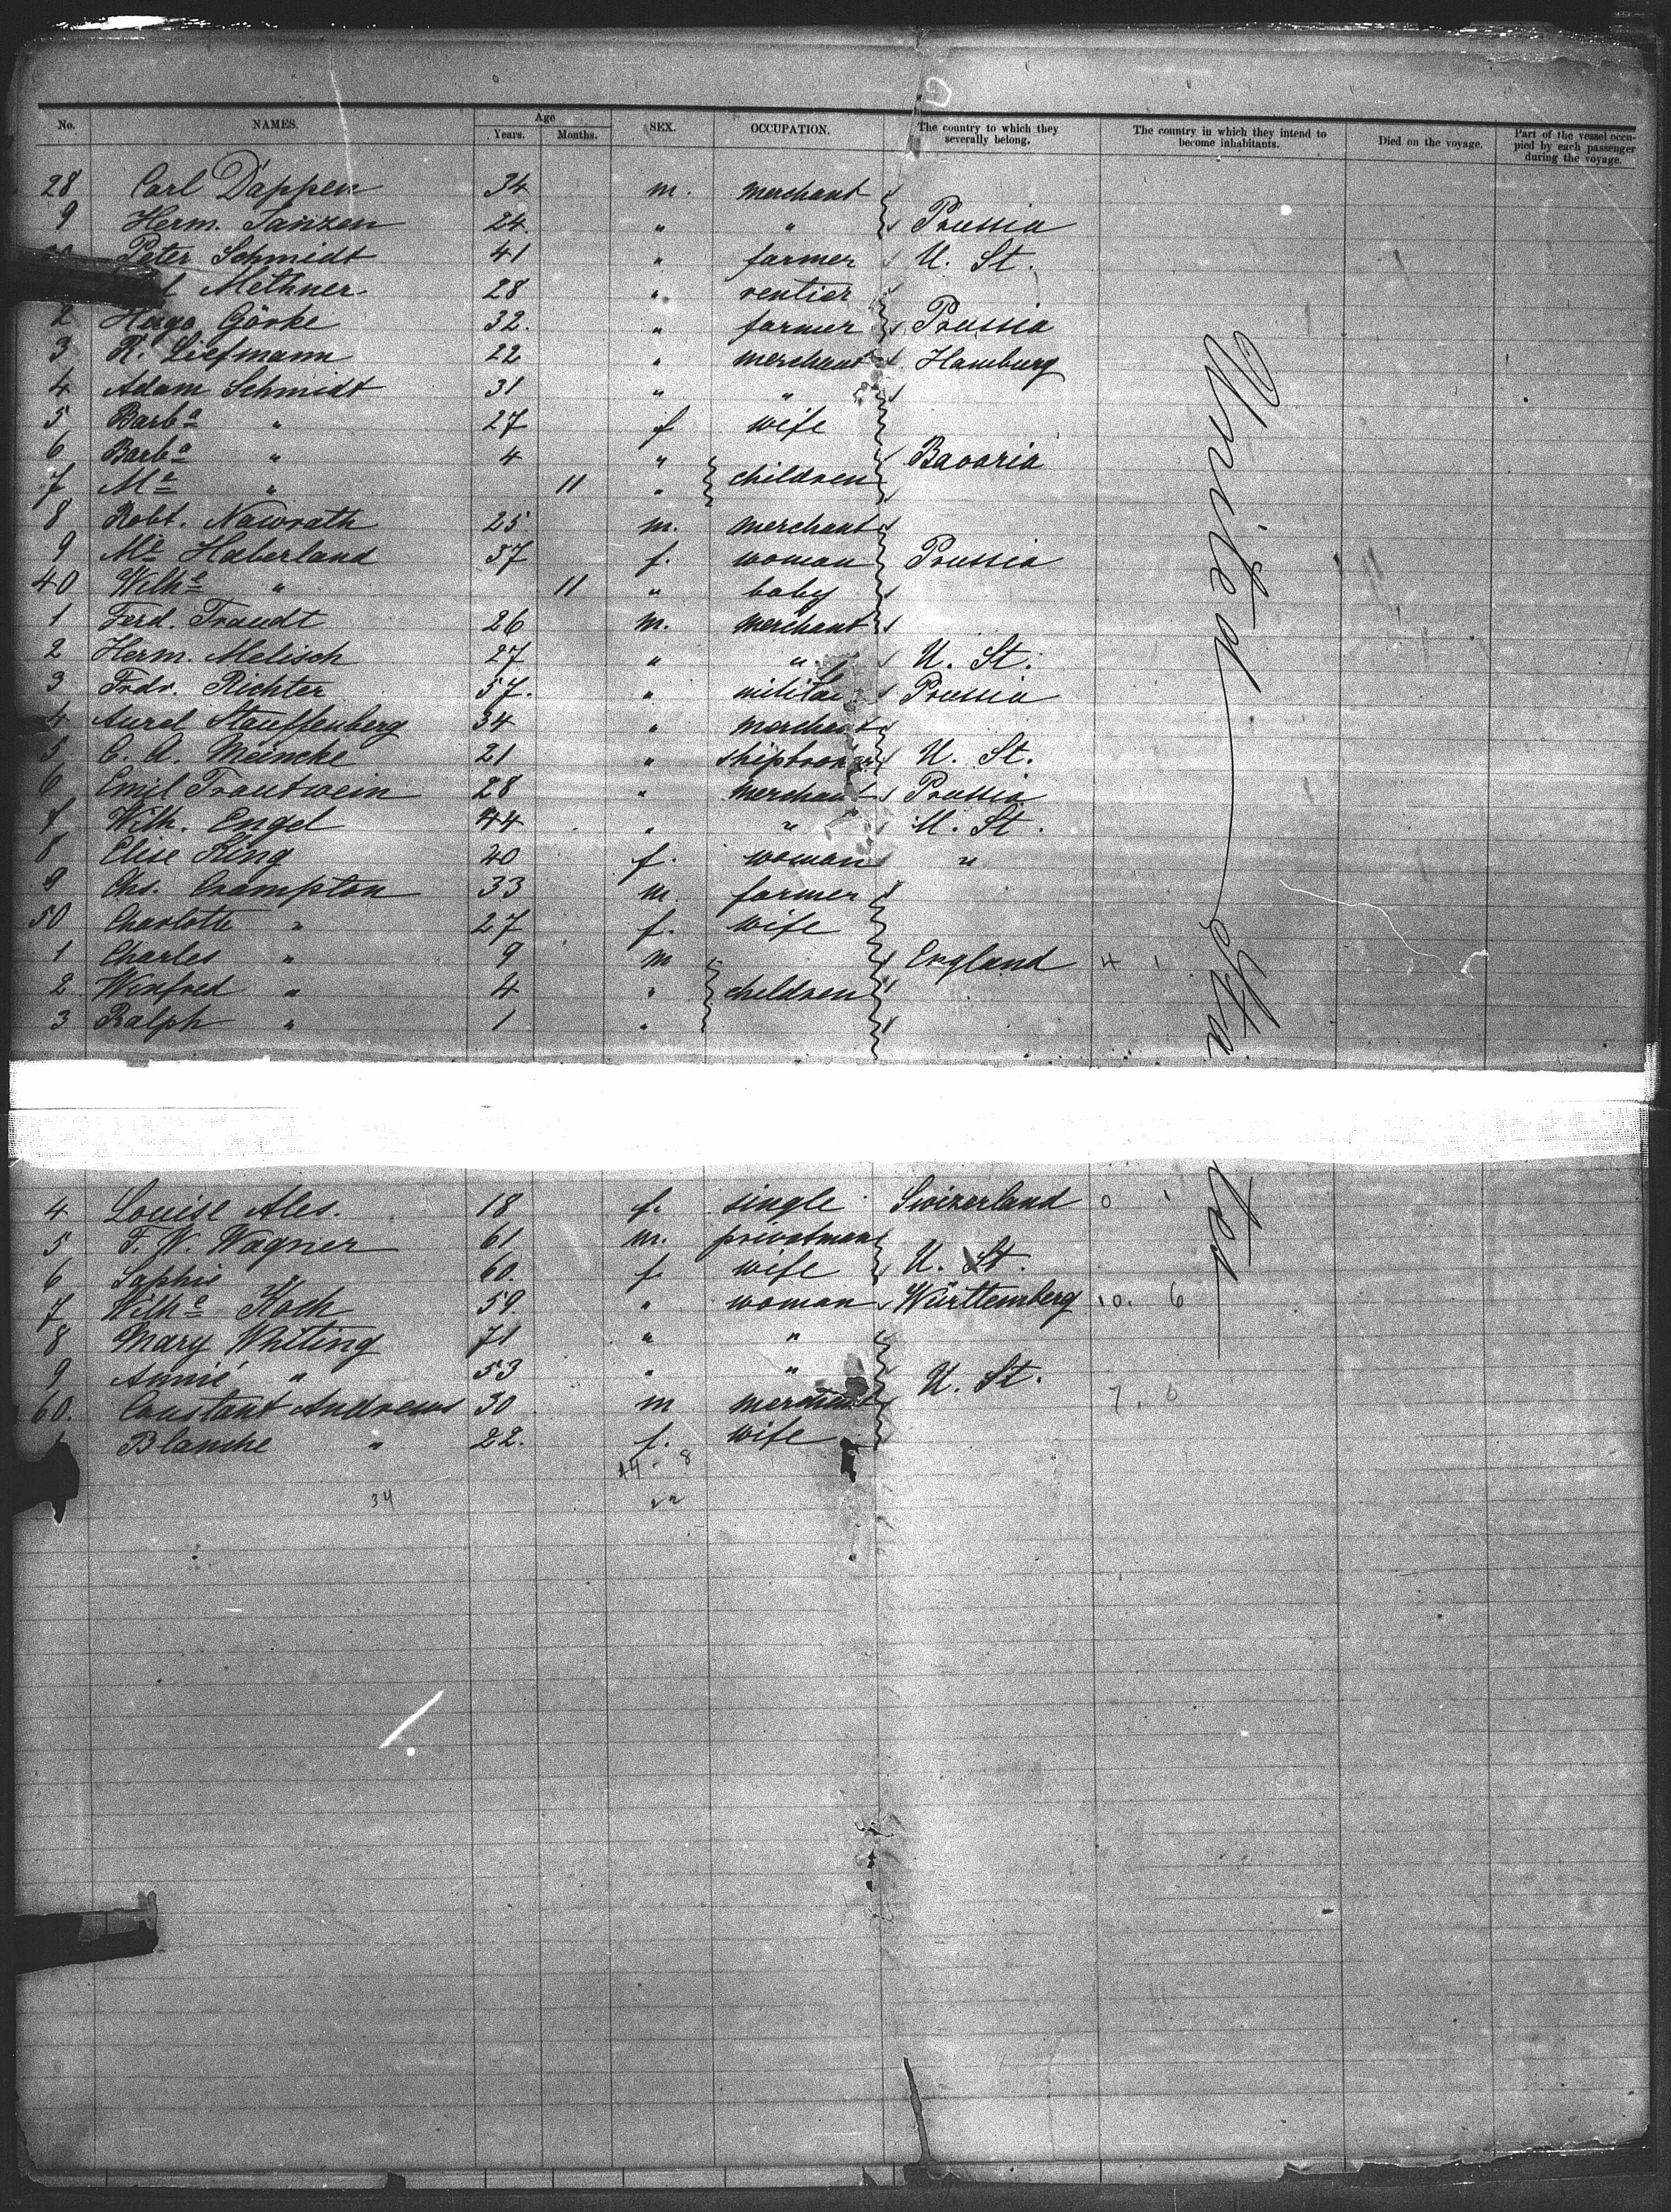 No. NAMES. Age Years. Months. SEX. OCCUPATION. The country to which they severally belong. The country in which they intend to become inhabitants. Died on the voyage. Part of the vessel occupied by each passenger during the voyage.
28 Carl Däppen 34 m. merchant
9 Herm. Janzen 24 " " Prussia
Peter Schmidt 41 " farmer U. St.
Methner 28 " rentier
2 Hugo Görke 32. " farmer Prussia
3 R. Liefmann 22 " merchant Hamburg
4 Adam Schmidt 31 " "
5 Barba " 27 f wife
6 Barba " 4 " Bavaria
7 Ma " 11 " children
8 Robt. Nawrath 25 m. merchant
9 Me Haberland 37 f. woman Prussia
40 Wilhe " 11 " baby
1 Ferd. Traudt 26 m. merchant
2 Herm. Melisch 27 " " U. St.
3 Frdr. Richter 57. " Prussia
4 Aurel Stauffenberg 34 " merchant
5 C. A. Meincke 21 " shipbroker U. St.
6 Emil Trautwein 28 " merchant Prussia
7 Wilh. Engel 44 " " U. St.
8 Elise King 40 f. woman "
9 Chs. Crampton 33 m. farmer
50 Charlotte " 27 f. wife
1 Charles " 9 m England 4 1
2 Winfred " 4 " children
3 Ralph " 1 "
United States
4 Louise Ales. 18 f. single Swizerland 0 1
5 F. W. Wagner 61 m. privatman
6 Sophie " 60. f. wife U. St.
7 Wilhe Koch 59. " woman Württemberg 10. 6
8 Mary Whiting 71 " "
9 Annie " 53 " " U. St.
60. Constant Andrews 30 m merchant 7. 0
Blanche " 22. f. wife
44 - 8
34